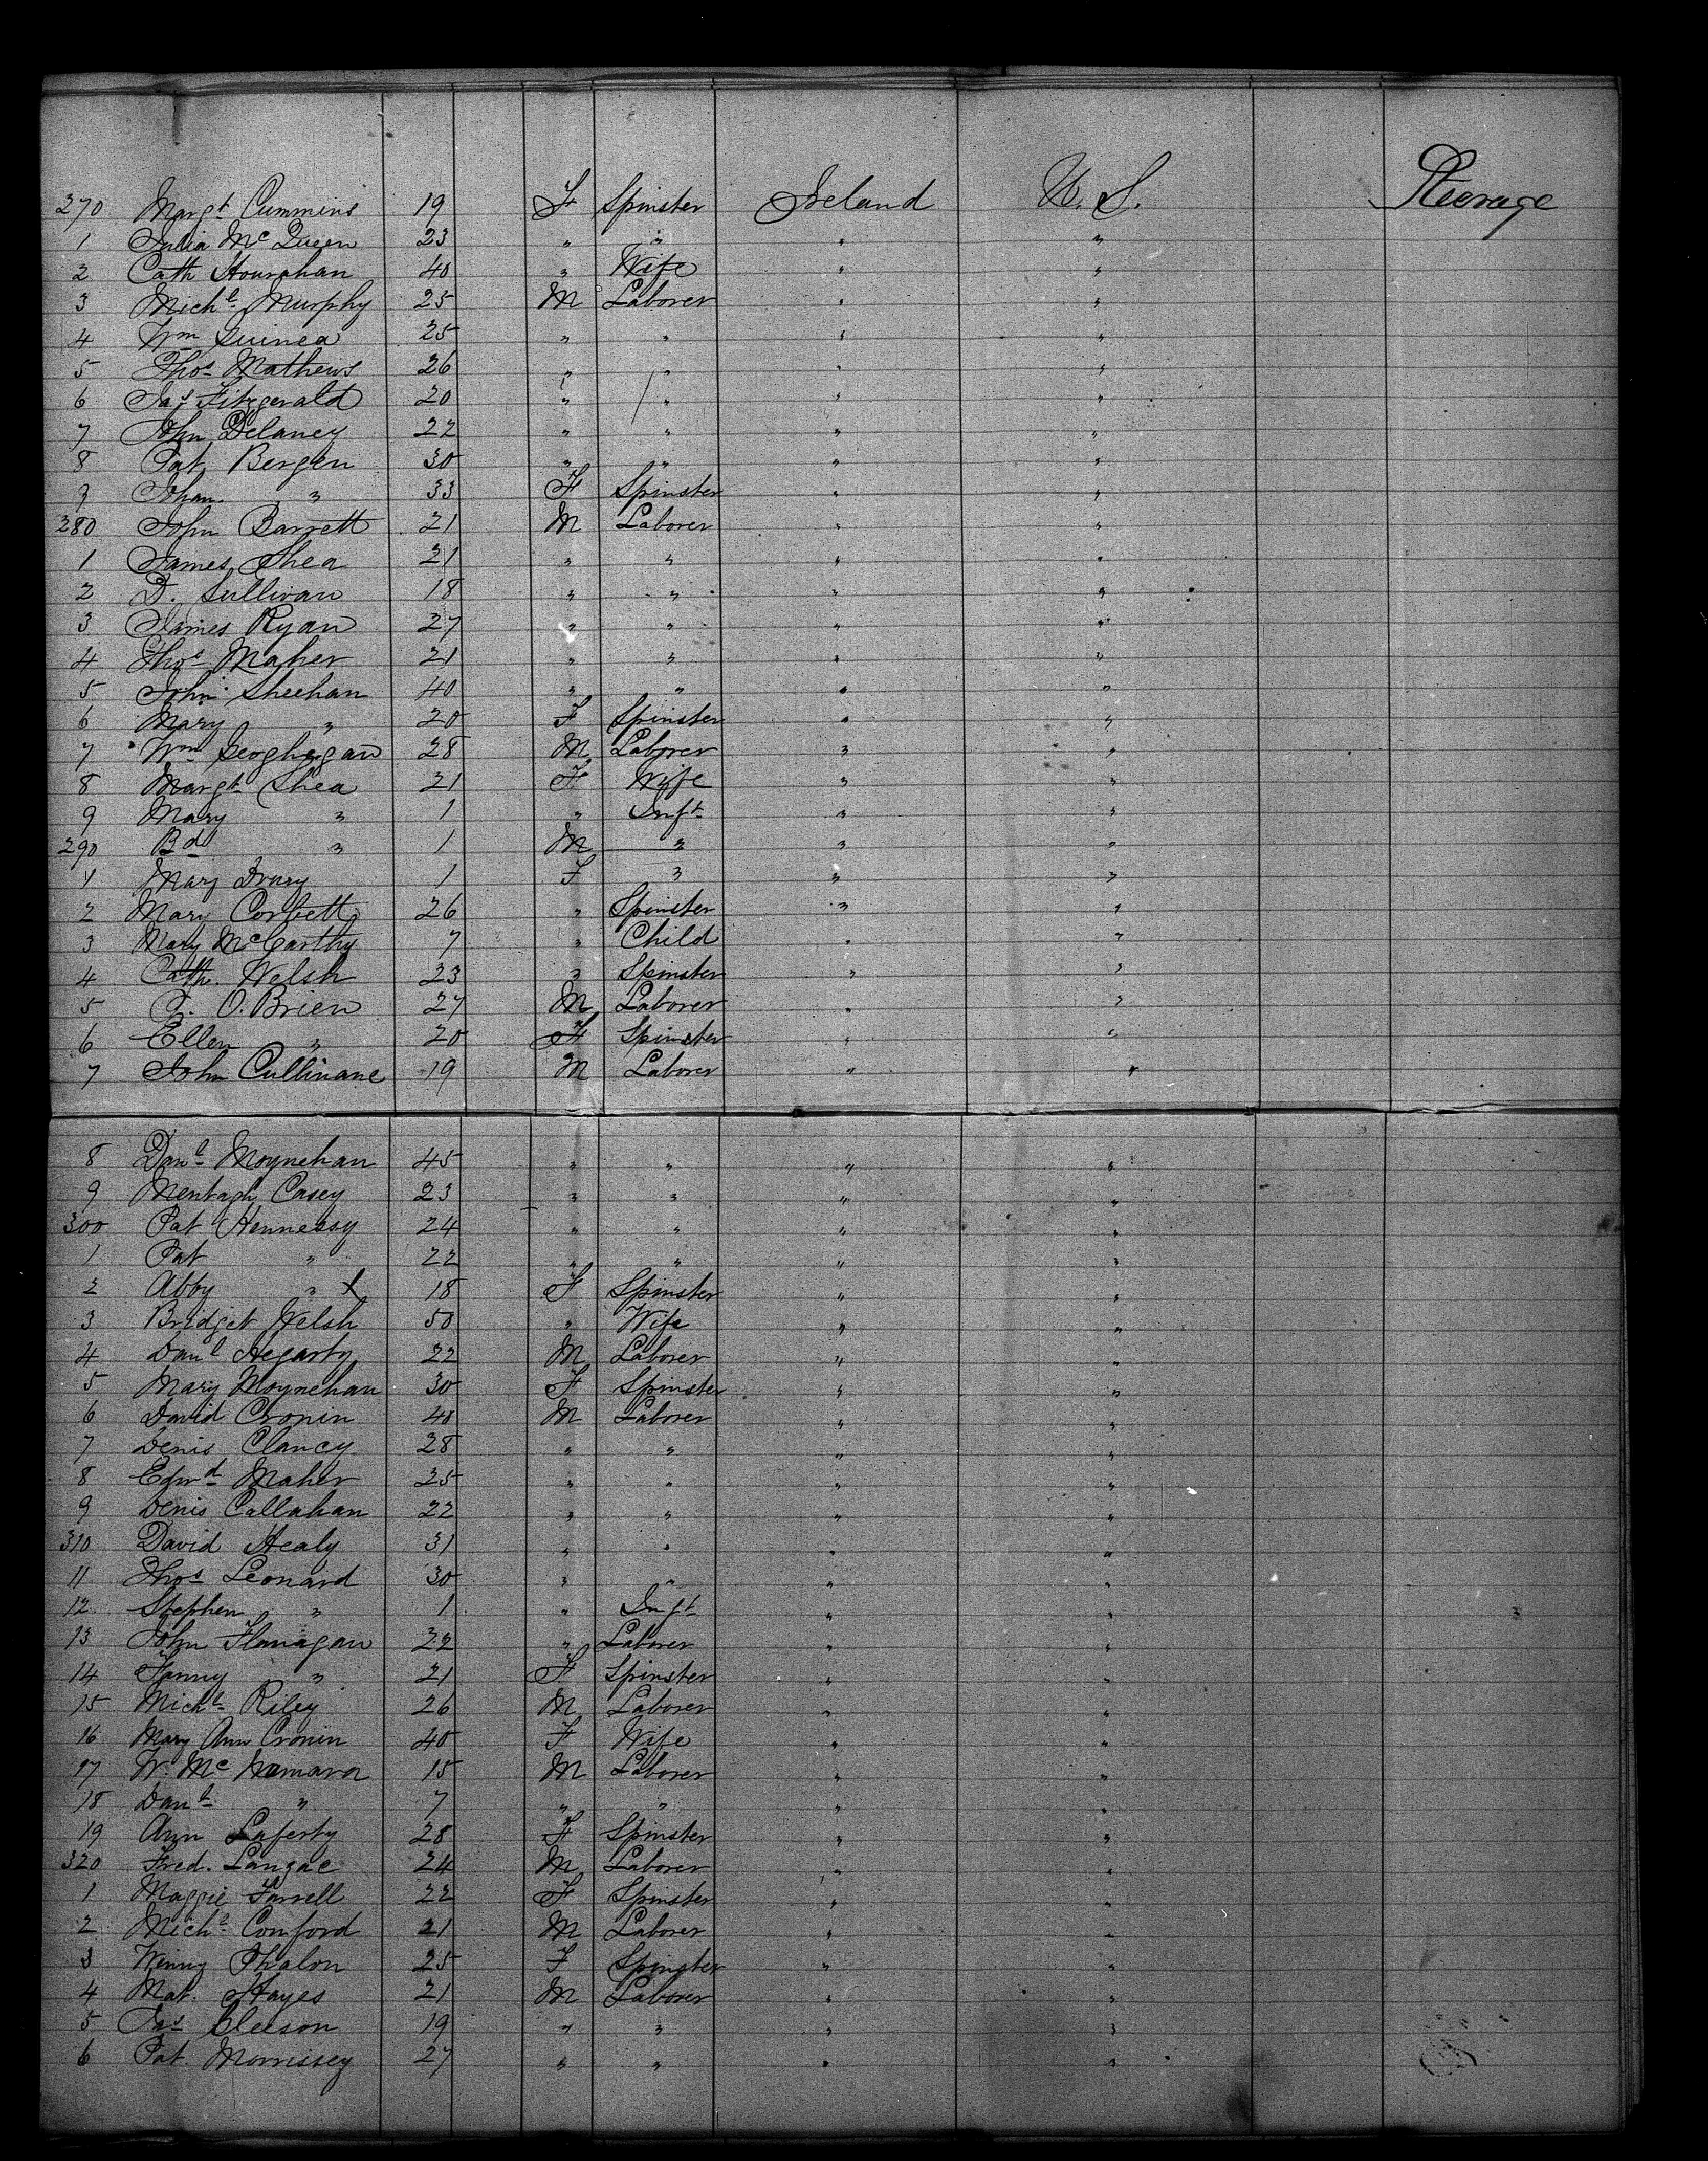 270 Margt Cummins 19 F Spinster Ireland U.S. Steerage
1 Julia McQueen 23 " " " "
2 Cath Hourahan 40 " Wife " "
3 Michl Murphy 25 M Laborer " "
4 Wm Guinea 25 " " " "
5 Thos Mathews 26 " " " "
6 Jas Fitzgerald 20 " " " "
7 John Delaney 22 " " " "
8 Pat Bergen 30 " " " "
9 Johan " 33 F Spinster " "
280 John Barrett 21 M Laborer " "
1 James Shea 21 " " " "
2 D. Sullivan 18 " " " "
3 James Ryan 27 " " " "
4 Thos Maher 21 " " " "
5 John Sheehan 40 " " " "
6 Mary " 20 F Spinster " "
7 Wm Geoghegan 28 M Laborer " "
8 Margt Shea 21 F Wife " "
9 Mary " 1 " Inft " "
290 Bd " 1 M " " "
1 Mary Drury 1 F " " "
2 Mary Corbett 26 " Spinster " "
3 Mary McCarthy 7 " Child " "
4 Cath. Welsh 23 " Spinster " "
5 O.Brien 27 M Laborer " "
6 Ellen " 20 F Spinster " "
7 John Cullinane 19 M Laborer " "
8 Danl Moynehan 45 " " " "
9 Casey 23 " " " "
300 Pat Hennessy 24 " " " "
1 Pat " 22 " " " "
2 Abby " x 18 F Spinster " "
3 Bridget Welsh 50 " Wife " "
4 Danl Hegarty 22 M Laborer " "
5 Mary Moynehan 30 F Spinster " "
6 David Cronin 40 M Laborer " "
7 Denis Clancy 28 " " " "
8 Edwd Maher 25 " " " "
9 Denis Callahan 22 " " " "
310 David Healy 31 " " " "
11 Thos Leonard 30 " " " "
12 Stephen " 1 " Inft " "
13 John Flanagan 22 " Laborer " "
14 Fanny " 21 F Spinster " "
15 Michl Riley 26 M Laborer " "
16 Mary Ann Cronin 40 F Wife " "
17 W. McNamara 15 M Laborer " "
18 Danl " 7 " " " "
19 Ann Laferty 28 F Spinster " "
320 Fred. Langac 24 M Laborer " "
1 Maggie Farrell 22 F Spinster " "
2 Michl Conford 21 M Laborer " "
3 Winny Phalon 25 F Spinster " "
4 Mat. Hayes 21 M Laborer " "
5 Jas Gleeson 19 " " " "
6 Pat Morrissey 27 " " " "